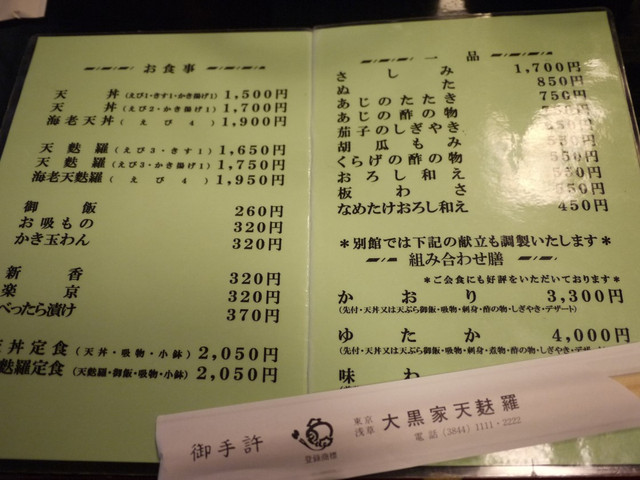 お食事
天丼(えび1・きす1・かき揚げ1) 1,500円
天丼(えび2・かき揚げ1) 1,700円
海老天丼(えび4) 1,900円
天麩羅(えび3・きす1) 1,650円
天麩羅(えび3・かき揚げ1) 1,750円
海老天麩羅(えび4) 1,950円
御飯 260円
お吸もの 320円
かき玉わん 320円
新香 320円
楽京 320円
べったら漬け 370円
天丼定食(天丼・吸物・小鉢) 2,050円
麩羅定食(天麩羅・御飯・吸物・小鉢) 2,050円
一品
さしみ 1,700円
ぬた 850円
あじのたたき 750円
あじの酢の物
茄子のしぎやき
胡瓜もみ
くらげの酢の物 550円
おろし和え 550円
板わさ
なめたけおろし和え 450円
*別館では下記の献立も調製いたします*
組み合わせ膳
*ご会食にも好評をいただいております*
かおり 3,300円
(先付・天丼又は天ぷら御飯・吸物・刺身・酢の物・しぎやき・デザート)
ゆたか 4,000円
(先付・天丼又は天ぷら御飯・吸物・刺身・煮物・酢の物・しぎやき・デザート)
味わ
御手許
登録商標
東京
浅草
大黒家天麩羅
電話(3844)1111・2222